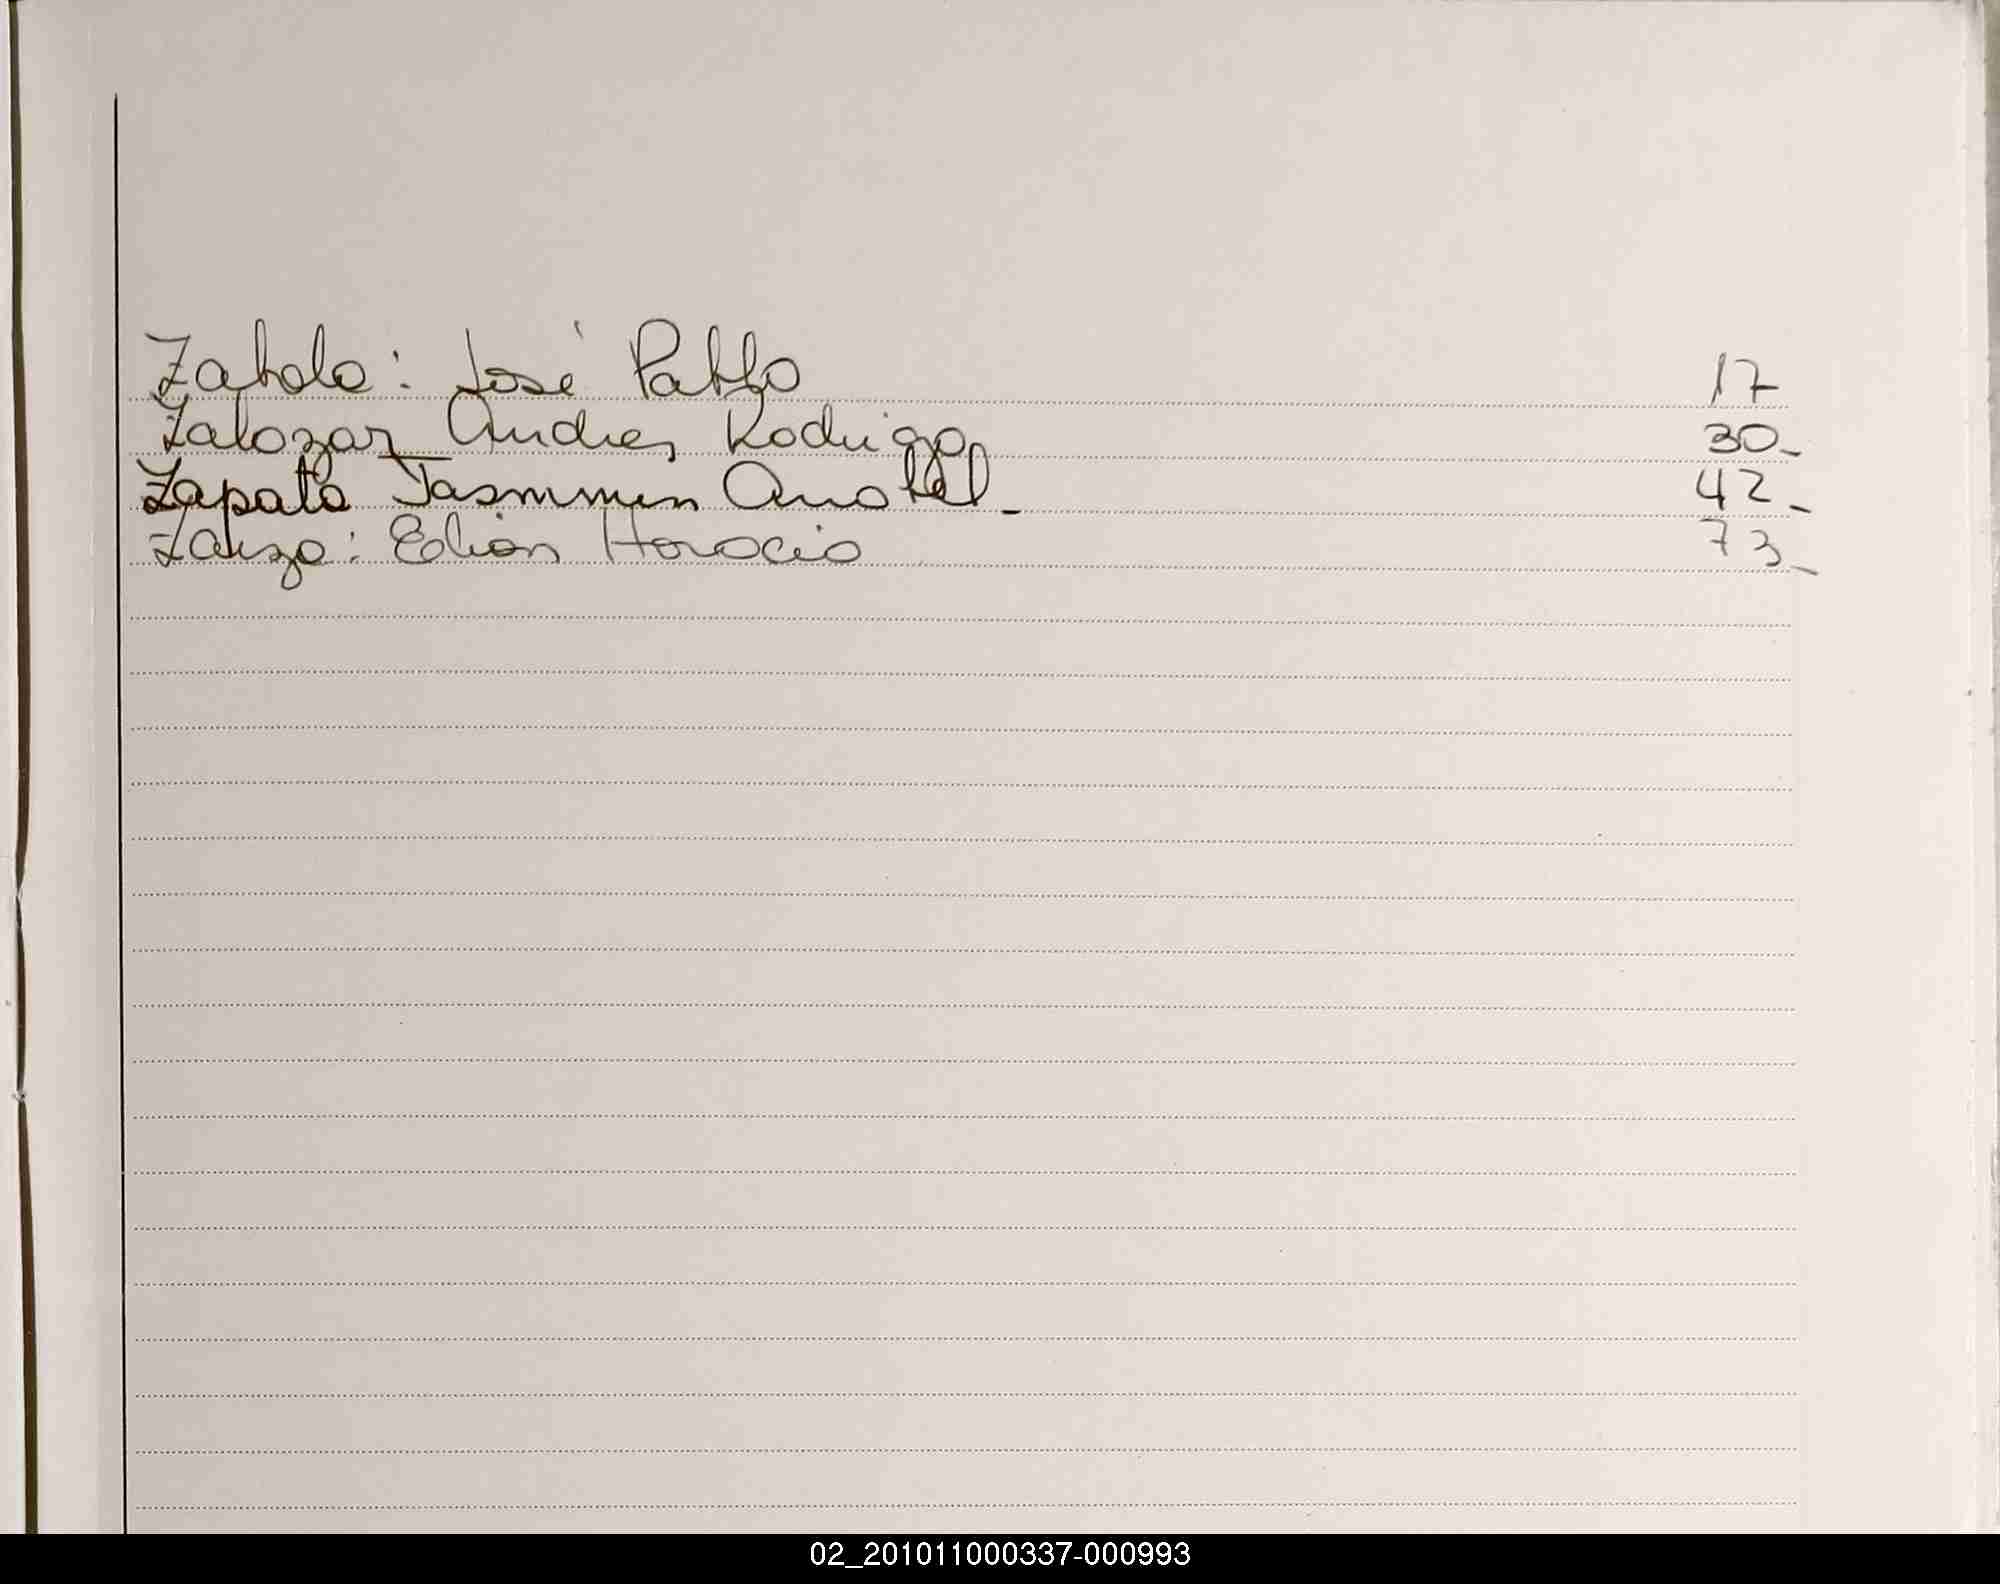 Zabala: José Pablo 17
Zalazar Andres Rodrigo 30_
Zapata Jasmmin Anabel_ 42_
Zarzo: Elian Horacio 73_
02_201011000337-000993